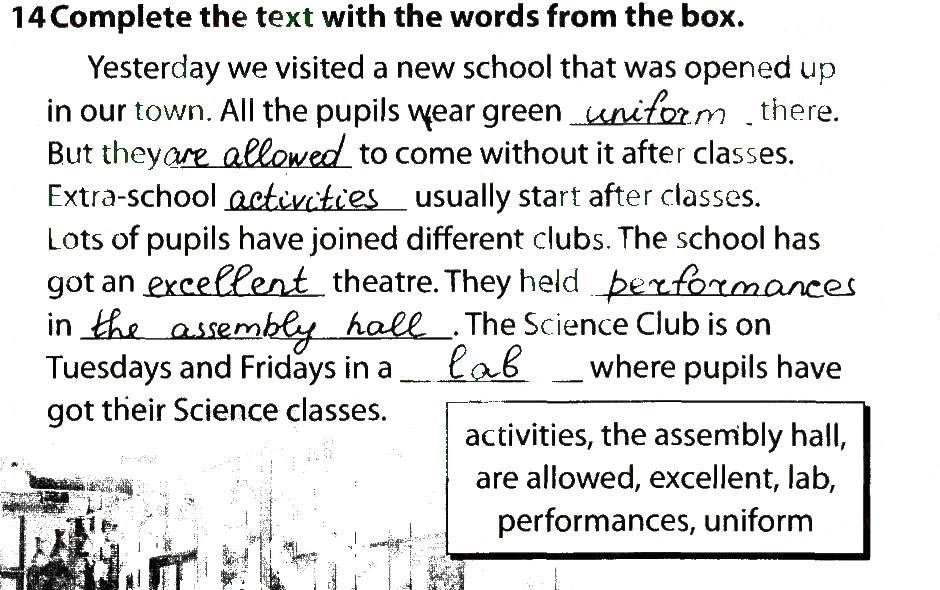 14 Complete the text with the words from the box.
Yesterday we visited a new school that was opened up
in our town. All the pupils wear green uniform there.
But they are allowed to come without it after classes.
Extra-school activities usually start after classes.
Lots of pupils have joined different clubs. The school has
got an excellent theatre. They held performances
in the assembly hall. The Science Club is on
Tuesdays and Fridays in a lab where pupils have
got their Science classes.
activities, the assembly hall,
are allowed, excellent, lab,
performances, uniform